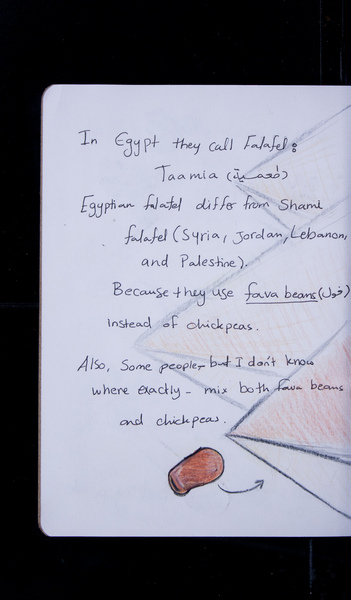 In Egypt they call Falafel:
Taamia (طعمية)
Egyptian falafel differ from Shami
falafel (Syria, Jordan, Lebanon,
and Palestine).
Because they use fava beans (فول)
instead of chickpeas.
Also, Some people - but I don't know
where exactly - mix both fava beans
and chickpeas.